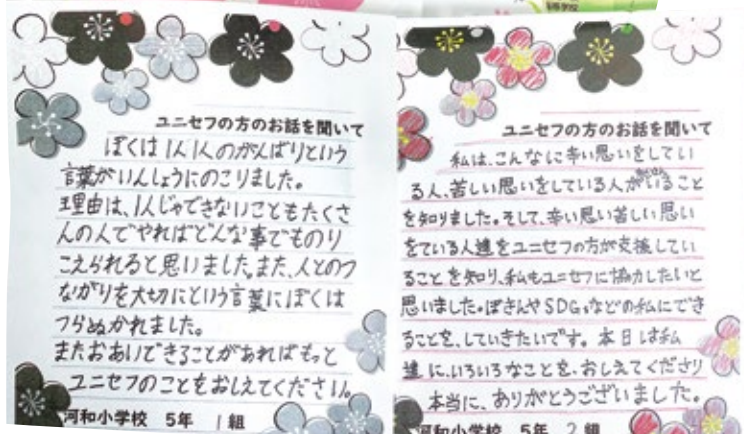 ユニセフの方のお話を聞いて
ぼくは1人1人のがんばりという
言葉がいんしょうにのこりました。
理由は、1人じゃできないこともたくさ
んの人でやればどんな事でものり
こえられると思いました。また、人とのつ
ながりを大切にという言葉にぼくは
つらぬかれました。
またおあいできることがあればもっと
ユニセフのことをおしえてください。
河和小学校 5年 1組
ユニセフの方のお話を聞いて
私は、こんなに辛い思いをしてい
る人、苦しい思いをしている人がいること
を知りました。そして、辛い思い苦しい思い
をている人達をユニセフの方が支援してい
ることを知り、私もユニセフに協力したいと
思いました。ぼきんやSDGsなどの私にでき
ることを、していきたいです。本日は私
達に、いろいろなことを、おしえてくださり
本当に、ありがとうございました。
河和小学校 5年 2組